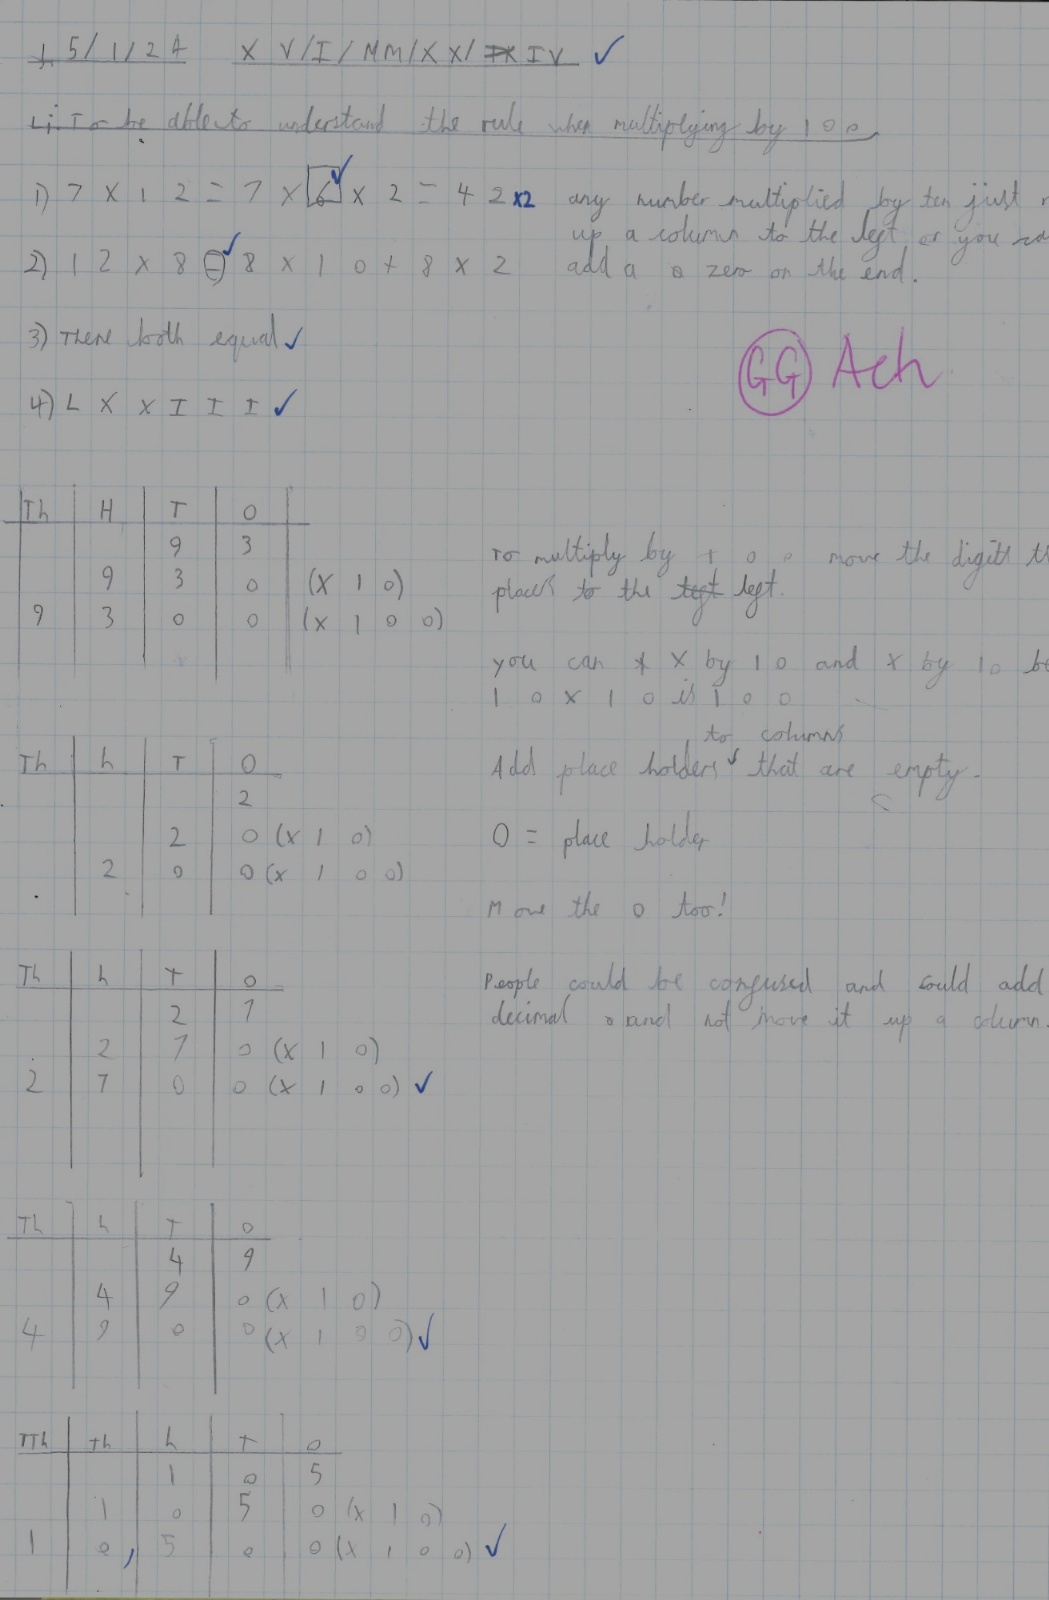 1 5 / 1 / 2 4 X V / I / MM / X X / IX IV ✓
Li To be able to understand the rule when multiplying by 1 0 0
1) 7 x 1 2 = 7 x 6 ✓ x 2 = 4 2 x2 any number multiplied by ten just
up a column to the left or you
2) 1 2 x 8 = ✓ 8 x 1 0 + 8 x 2 add a o zero on the end.
3) There both equal ✓
GG Ach
4) L X X I I I ✓
Th H T O
9 3
9 3 0 (x 1 0)
9 3 0 0 (x 1 0 0)
To multiply by 1 0 0 move the digits
places to the left left.
you can x by 1 0 and x by 1 0
1 0 x 1 0 is 1 0 0
to columns
Add place holders that are empty.
O = place holder
Move the 0 too!
Th h T O
2
2 0 (x 1 0)
2 0 0 (x 1 0 0)
People could be confused and could add
decimal 0 and not move it up a column.
Th h T O
2 7
2 7 0 (x 1 0)
2 7 0 0 (x 1 0 0) ✓
Th h T O
4 9
4 9 0 (x 1 0)
4 9 0 0 (x 1 0 0) ✓
TTh Th h T O
1 0 5
1 0 5 0 (x 1 0)
1 0 , 5 0 0 (x 1 0 0) ✓